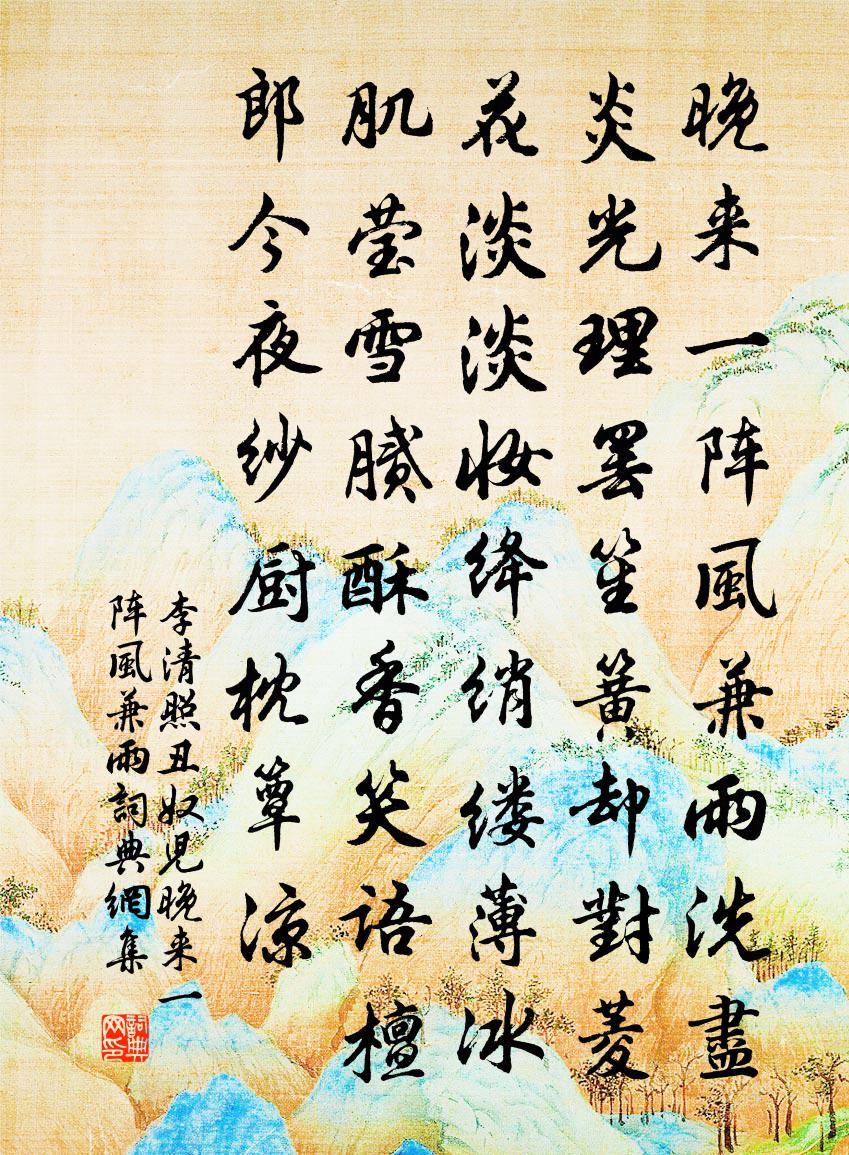 晚来一阵風兼雨洗盡
炎光理罢笙簧却對菱
花淡淡妆绛绡缕薄冰
肌莹雪腻酥香笑语檀
郎今夜纱厨枕簟凉
李清照丑奴児晚来一
阵風兼雨詞典網集
詞典网印